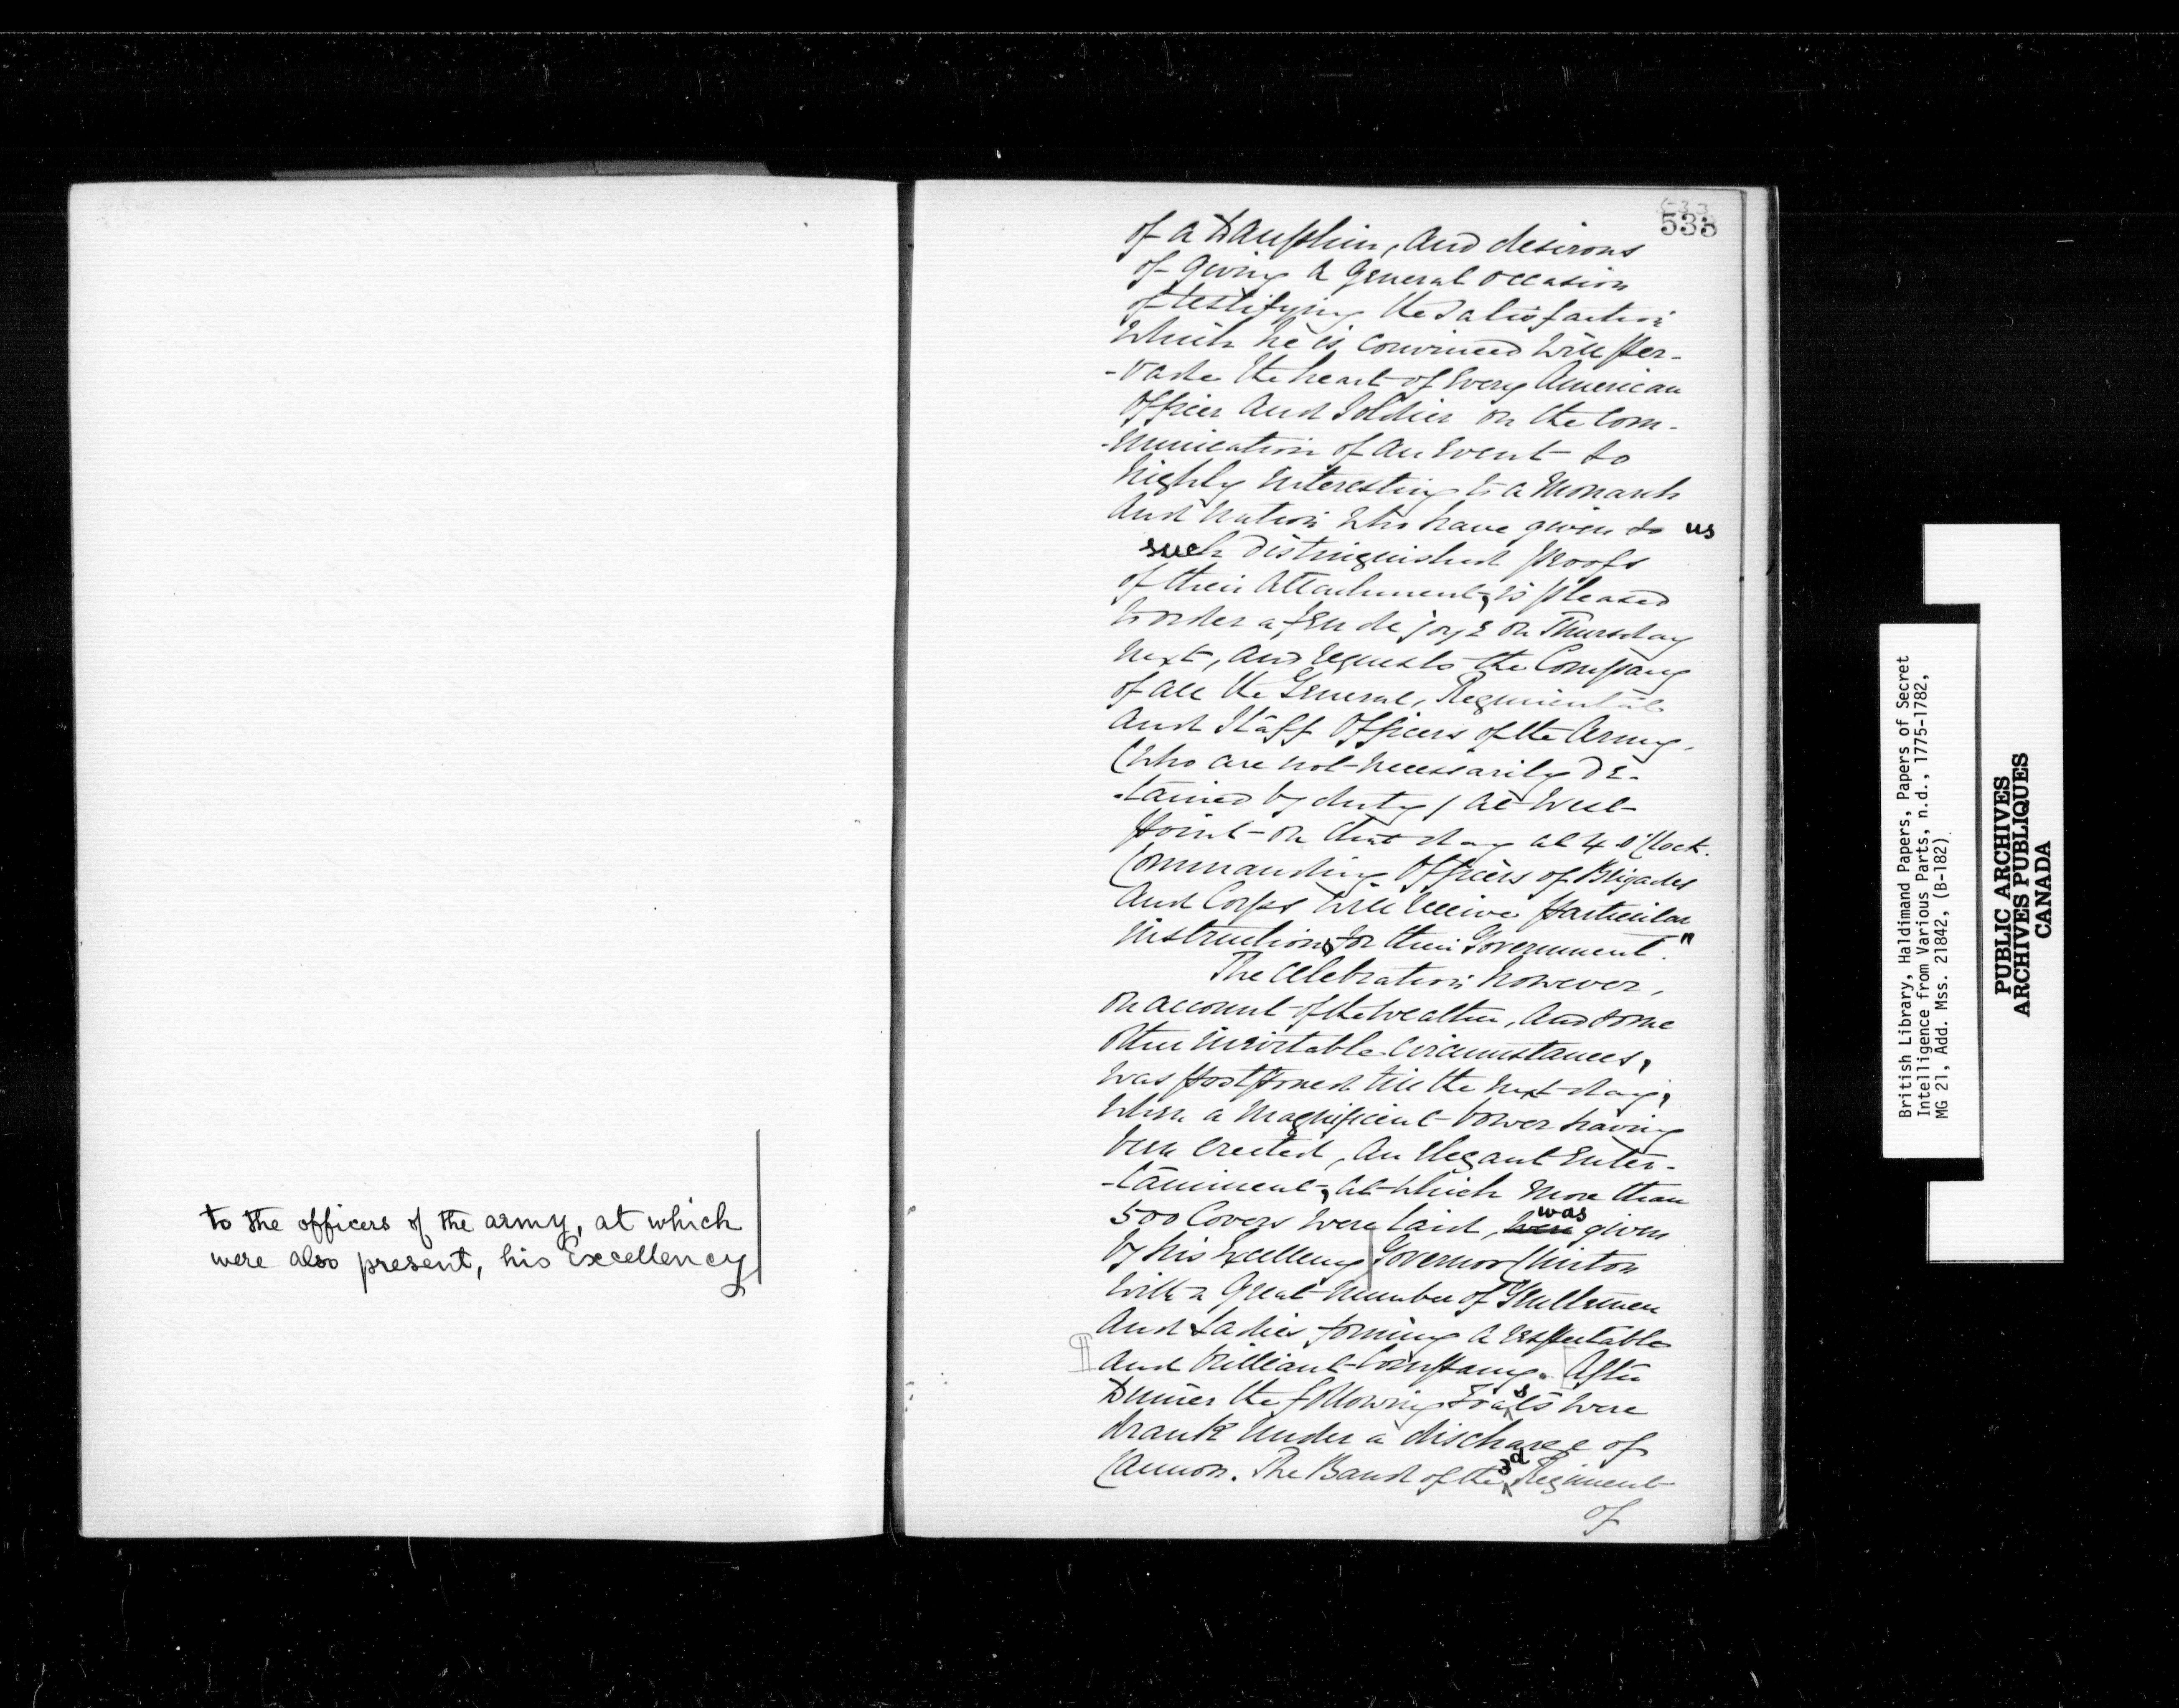 to the officers of the army, at which
were also present, his Excellency
533
533
of a Dauphin, and desirous
of giving a general occasion
of testifying the satisfaction
which he is convinced will per-
-vade the heart of every American
Officer and Soldier on the com-
-munication of an event so
highly interesting to a Monarch
and nation who have given to us
such distinguished proofs
of their attachment, is pleased
to order a feu de joye on Thursday
next, and requests the Company
of all the General, Regimental
and Staff Officers of the Army,
(who are not necessarily de-
-tained by duty) at West
Point on that day at 4 o'Clock.
Commanding Officers of Brigades
and Corps will receive particular
instructions for their Government."
The celebration however,
on account of the weather, and some
other inevitable circumstances,
was postponed till the next day,
when a magnificent bower having
been erected, an elegant enter-
-tainment, at which more than
500 Covers were laid, were was given
by his Excellency Governor Clinton
with a great number of Gentlemen
and Ladies forming a respectable
and brilliant Company. After
Dinner the following toasts were
drank under a discharge of
Cannon. The Band of the 3d Regiment
of
British Library, Haldimand Papers, Papers of Secret
Intelligence from Various Parts, n.d., 1775-1782,
MG 21, Add. Mss. 21842, (B-182)
PUBLIC ARCHIVES
ARCHIVES PUBLIQUES
CANADA